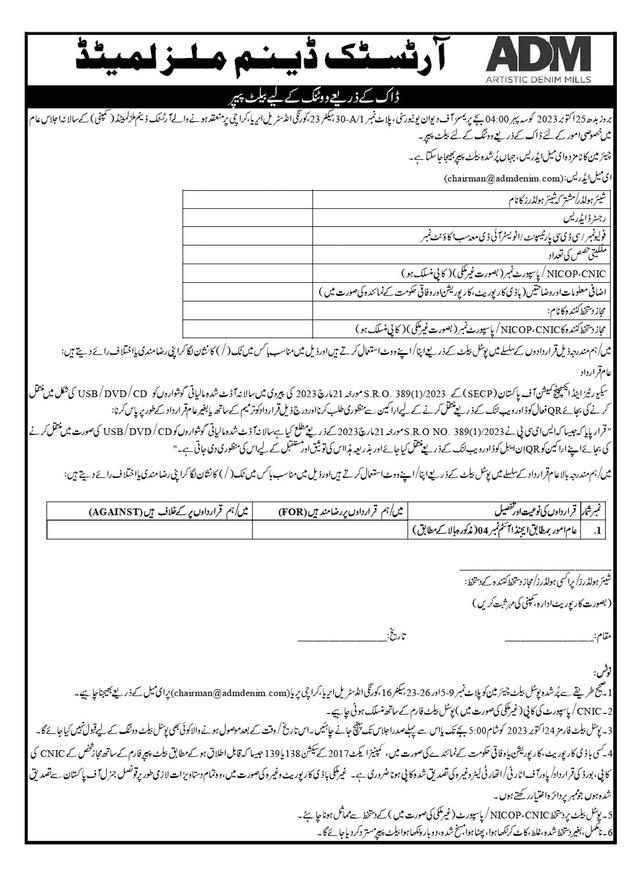 آرٹسٹک ڈینم ملز لمیٹڈ
ADM
ARTISTIC DENIM MILLS
ڈاک کے ذریعے ووٹنگ کے لیے بیلٹ پیپر
بروز بدھ 25 اکتوبر 2023 کو سہ پہر 04:00 بجے پریمسز آف دیوان یونیورسٹی، پلاٹ نمبر 30-A/1 سیکٹر 23، کورنگی انڈسٹریل ایریا، کراچی پر منعقد ہونے والے آرٹسٹک ڈینم ملز لمیٹڈ (کمپنی) کے سالانہ اجلاس عام
میں خصوصی امور کے لئے ڈاک کے ذریعے ووٹنگ کے لئے بیلٹ پیپر۔
چیئرمین کا نامزدہ ای میل ایڈریس، جہاں پُر شدہ بیلٹ پیپر بھیجا جاسکتا ہے۔
ای میل ایڈریس: (chairman@admdenim.com)
شیئر ہولڈر/مشترکہ شیئر ہولڈرز کا نام
رجسٹرڈ ایڈریس
فولیو نمبر/سی ڈی سی پارٹیسپنٹ/انویسٹر آئی ڈی معہ سب اکاؤنٹ نمبر
ملکیتی حصص کی تعداد
NICOP،CNIC/پاسپورٹ نمبر (بصورت غیر ملکی) (کاپی منسلک ہو)
اضافی معلومات اور وضاحتیں (باڈی کارپوریٹ، کارپوریشن اور وفاقی حکومت کے نمائندہ کی صورت میں)
مجاز دستخط کنندہ کا نام:
مجاز دستخط کنندہ کا NICOP،CNIC/پاسپورٹ نمبر (بصورت غیر ملکی) (کاپی منسلک ہو)
میں/ہم مندرجہ ذیل قراردادوں کے سلسلے میں پوسٹل بیلٹ کے ذریعے اپنا/اپنے ووٹ استعمال کرتے ہیں اور ذیل میں مناسب باکس میں ٹک (/) کا نشان لگا کر اپنی رضامندی یا اختلاف رائے دیتے ہیں:
عام قرارداد
سیکیورٹیز اینڈ ایکسچینج کمیشن آف پاکستان (SECP) کے S.R.O. 389(1)/2023 مورخہ 21 مارچ 2023 کی پیروی میں سالانہ آڈٹ شدہ مالیاتی گوشواروں کو USB/DVD/CD کی شکل میں منتقل
کرنے کی بجائے QR فعال کوڈ اور ویب لنک کے ذریعے منتقل کرنے کے لیے اراکین سے منظوری طلب کرنا اور درج ذیل قرارداد کو ترمیم کے ساتھ یا بغیر عام قرارداد کے طور پر پاس کرنا:
"قرار پایا کہ جیسا کہ ایس ای سی پی نے S.R.O NO. 389(1)/2023 مورخہ 21 مارچ 2023 کے ذریعے مطلع کیا ہے سالانہ آڈٹ شدہ مالیاتی گوشواروں کو USB/DVD/CD کی صورت میں منتقل کرنے
کی بجائے اپنے اراکین کو QR ان ایبل کوڈ اور ویب لنک کے ذریعے منتقل کیا جائے اور بذریعہ ہذا اس کی توثیق اور مستقبل کے لیے اس کی منظوری دی جاتی ہے۔"
میں/ہم مندرجہ بالا عام قرارداد کے سلسلے میں پوسٹل بیلٹ کے ذریعے اپنا/اپنے ووٹ استعمال کرتے ہیں اور ذیل میں مناسب باکس میں ٹک (/) کا نشان لگا کر اپنی رضامندی یا اختلاف رائے دیتے ہیں:
نمبر شمار قراردادوں کی نوعیت اور تفصیل میں/ہم قراردادوں پر رضامند ہیں (FOR) میں/ہم قراردادوں پر کے خلاف ہیں (AGAINST)
1. عام امور بمطابق ایجنڈا آئٹم نمبر 04 (مذکورہ بالا کے مطابق)
شیئر ہولڈرز/پراکسی ہولڈرز/مجاز دستخط کنندہ کے دستخط:
(بصورت کارپوریٹ ادارہ، کمپنی کی مہر ثبت کریں)
مقام: ____________ تاریخ: ____________
نوٹس:
1۔ صحیح طریقے سے پُر شدہ پوسٹل بیلٹ چیئرمین کو پلاٹ نمبر 5-9 اور 23-26 سیکٹر 16، کورنگی انڈسٹریل ایریا، کراچی پر یا (chairman@admdenim.com) پر ای میل کے ذریعے بھیجنا چاہیے۔
2۔ CNIC/پاسپورٹ کی کاپی (غیر ملکی کی صورت میں) پوسٹل بیلٹ فارم کے ساتھ منسلک ہونی چاہیے۔
3۔ پوسٹل بیلٹ فارمز 24 اکتوبر 2023 کو شام 5:00 بجے تک یا اس سے پہلے صدر اجلاس تک پہنچ جانے چاہئیں۔ اس تاریخ/وقت کے بعد موصول ہونے والا کوئی بھی پوسٹل بیلٹ ووٹنگ کے لیے قبول نہیں کیا جائے گا۔
4۔ کسی باڈی کارپوریٹ، کارپوریشن یا وفاقی حکومت کے نمائندے کی صورت میں، کمپنیز ایکٹ 2017 کے سیکشن 138 یا 139 جیسا کہ قابل اطلاق ہو کے مطابق بیلٹ پیپر فارم کے ساتھ مجاز شخص کے CNIC کی
کاپی، بورڈ کی قرارداد/پاور آف اٹارنی/اتھارٹی لیٹر وغیرہ کی تصدیق شدہ کاپی ہونا ضروری ہے۔ غیر ملکی باڈی کارپوریٹ وغیرہ کی صورت میں، وہ تمام دستاویزات لازمی طور پر قونصل جنرل آف پاکستان سے تصدیق
شدہ ہوں جو ممبر پر دائرہ اختیار رکھتے ہوں۔
5۔ پوسٹل بیلٹ پر دستخط NICOP،CNIC/پاسپورٹ (غیر ملکی کی صورت میں) کے دستخط سے مماثل ہونا چاہئے۔
6۔ نامکمل، بغیر دستخط شدہ، غلط، کاٹ کر لکھا ہوا، پھٹا ہوا، مسخ شدہ، دوبارہ لکھا ہوا بیلٹ پیپر مسترد کر دیا جائے گا۔